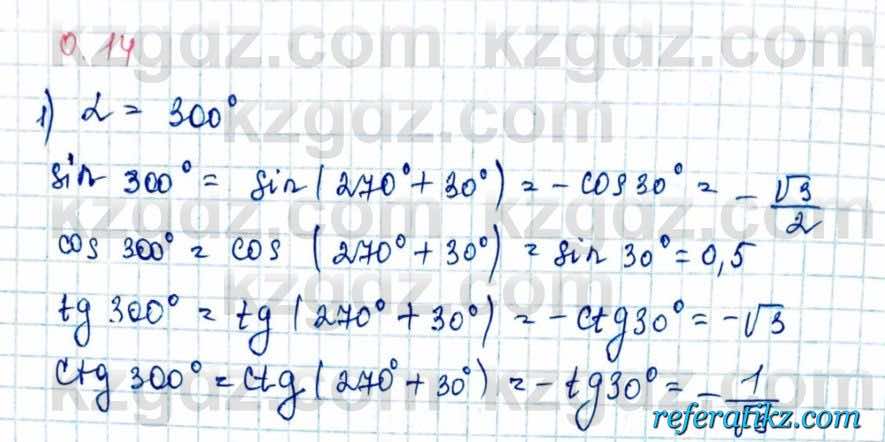 0.14
1) α = 300°
sin 300° = sin(270° + 30°) = -cos30° = -√3/2
cos 300° = cos (270° + 30°) = sin 30° = 0,5
tg 300° = tg (270° + 30°) = -ctg30° = -√3
ctg 300° = ctg (270° + 30°) = -tg30° = -1/√3
kzgdz.com kzgdz.com
kzgdz.com
kzgdz.com kzgdz.com
kzgdz.com
kzgdz.com kzgdz.com
referatikz.com